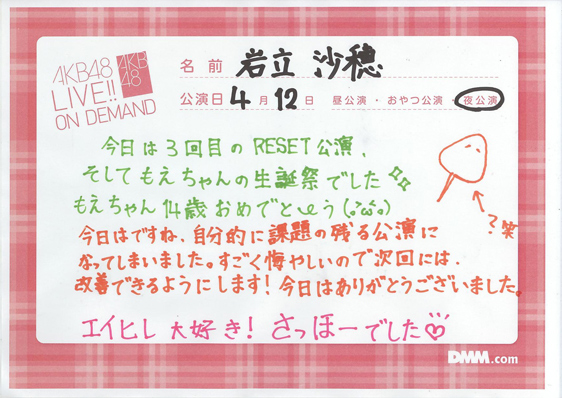 AKB48
LIVE!!
ON DEMAND
AKB
48
名前 岩立 沙穂
公演日 4月12日 昼公演・おやつ公演・夜公演
今日は3回目のRESET公演、
そしてもえちゃんの生誕祭でした
もえちゃん14歳おめでとーう(｡･ω･｡)
?笑
今日はですね、自分的に課題の残る公演に
なってしまいました。すごく悔やしいので次回には、
改善できるようにします!今日はありがとうございました。
エイヒレ大好き!さっほーでした♡
DMM.com